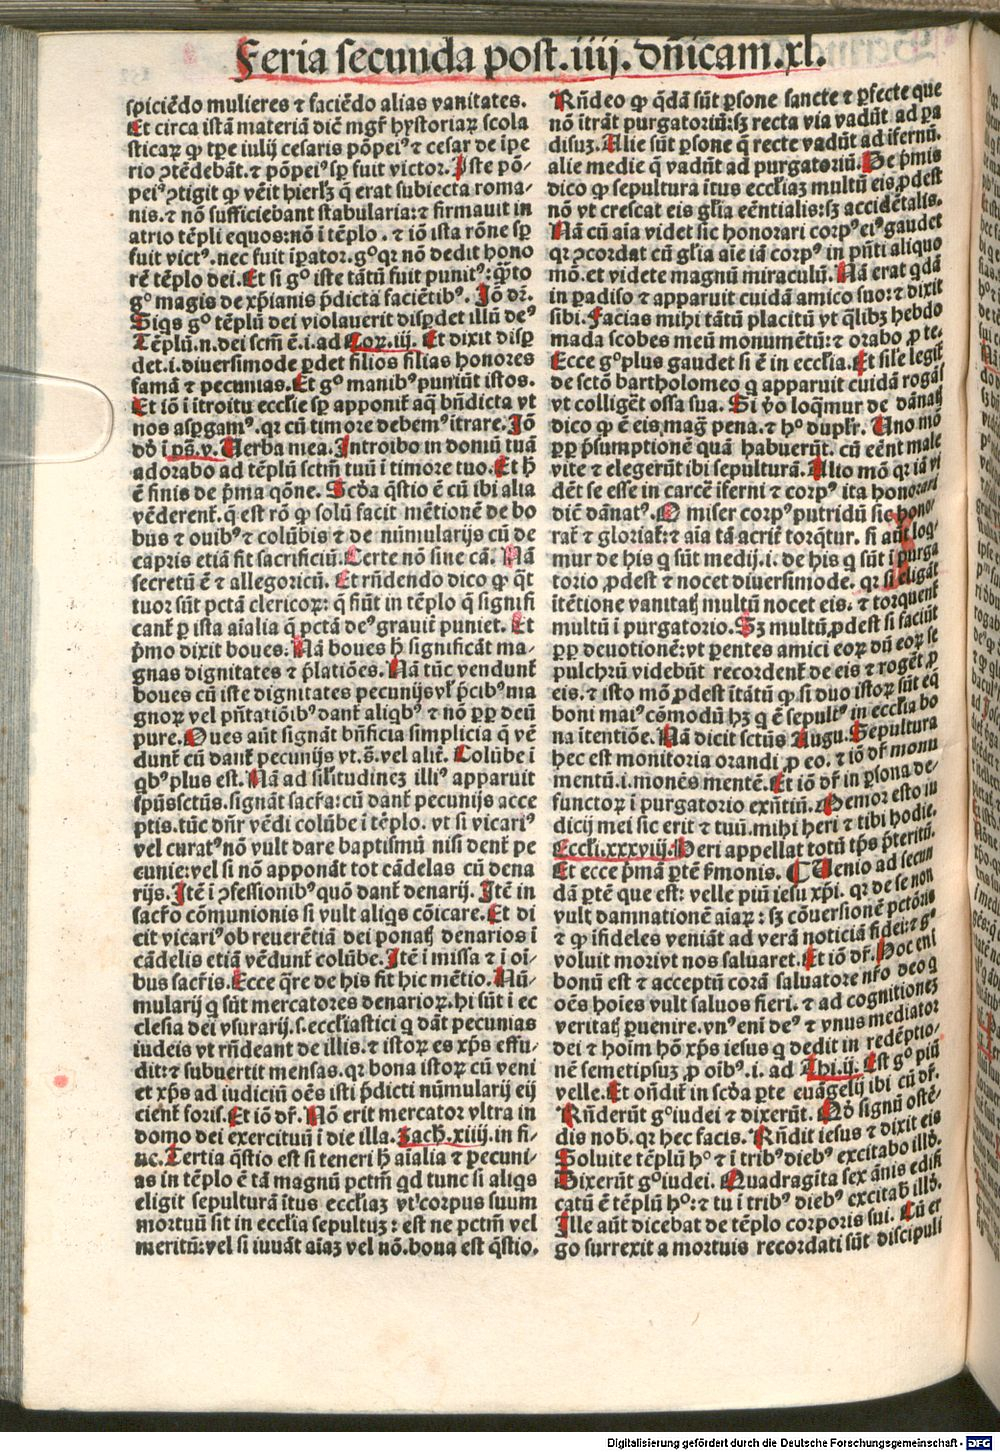 Feria secunda post .iiij. dn̄icam .xl.
spiciēdo mulieres ⁊ faciēdo alias vanitates.
Et circa istā materiā dic̄ mgr̄ hystoriaꝝ scola
sticaꝝ ꝙ tpe iulij cesaris pōpeiꝰ ⁊ cesar de īpe
rio ꝯtēdebāt. ⁊ pōpeiꝰ sꝑ fuit victor. Iste pō-
peiꝰ ꝯtigit ꝙ vēit hierlꝫ q̄ erat subiecta roma-
nis. ⁊ nō sufficiebant stabularia: ⁊ firmauit in
atrio tēpli equos: nō ī tēplo. ⁊ iō ista rōne sꝑ
fuit victꝰ. nec fuit īꝑator. gͦ qꝛ nō dedit hono
rē tēplo dei. Et si gͦ iste tātū fuit punitꝰ: q̄to
gͦ magis de xp̄ianis p̄dicta faciētibꝰ. Iō dꝛ̄.
Siqs gͦ tēplū dei violauerit disꝑdet illū deꝰ
Tēplū .n. dei scm̄ ē .i. ad Coꝝ. iij. Et dixit disꝑ
det .i. diuersimode ꝑdet filios filias honores
famā ⁊ pecunias. Et gͦ manibꝰ puriūt istos.
Et iō ī ītroitu eccl̄ie sꝑ apponit̄ aq̄ bn̄dicta vt
nos asꝑgamꝰ. qꝛ cū timore debemꝰ ītrare. Iō
dꝺ̄ ī ps̄. v. Verba mea. Introibo in domū tuā
adorabo ad tēplū sctm̄ tuū ī timore tuo. Et h̄
ē finis de p̄ma qōne. Scd̄a q̄stio ē cū ibi alia
vēderent̄. q̄ est rō ꝙ solū facit mētionē de bo
bus ⁊ ouibꝰ ⁊ colūbis ⁊ de nūmularijs cū de
capris etiā fit sacrificiū. Certe nō sine cā. Nā
secretū ē ⁊ allegoricū. Et rn̄dendo dico ꝙ q̄t
tuor sūt pctā clericoꝝ: q̄ fiūt in tēplo q̄ signifi
cant̄ ꝑ ista aīalia q̄ pctā deꝰ grauit̄ puniet. Et
p̄mo dixit boues. Nā boues h̄ significāt ma-
gnas dignitates ⁊ p̄latiōes. Nā tūc vendunt̄
boues cū iste dignitates pecunijs vl̄ p̄cibꝰ ma
gnoꝝ vel pn̄tatiōibꝰ dant̄ aliqbꝰ ⁊ nō ꝓꝑ deū
pure. Oues aūt signāt bn̄ficia simplicia q̄ vē
dunt̄ cū dant̄ pecunijs vt .s̄. vel alit̄. Colūbe ī
qbꝰ plus est. Nā ad sil̄itudinez illiꝰ apparuit
sp̄ussctūs. signāt sacr̄a: cū dant̄ pecunijs acce
ptis. tūc dn̄r vēdi colūbe ī tēplo. vt si vicariꝰ
vel curatꝰ nō vult dare baptismū nisi dent̄ pe
cunie: vel si nō apponāt tot cādelas cū dena
rijs. Itē ī ꝯfessionibꝰ quō dant̄ denarij. Itē in
sacr̄o cōmunionis si vult aliqs cōicare. Et di
cit vicariꝰ ob reuerētiā dei ponatꝭ denarios ī
cādelis etiā vēdunt̄ colūbe. Itē ī missa ⁊ ī oī-
bus sacr̄is. Ecce q̄re de his fit hic mētio. Nū-
mularij q sūt mercatores denarioꝝ. hi sūt ī ec
clesia dei vsurarij .s. eccl̄iastici q dāt pecunias
iudeis vt rn̄deant de illis. ⁊ istoꝝ es xp̄s effu-
dit: ⁊ subuertit mensas. qꝛ bona istoꝝ cū veni
et xp̄s ad iudiciū oēs isti p̄dicti nūmularij eij
cient̄ foris. Et iō dr̄. Nō erit mercator vltra in
domo dei exercituū ī die illa. Zach̄. xiiij. in fi-
ne. Tertia q̄stio est si teneri h̄ aīalia ⁊ pecuni-
as in tēplo ē tā magnū pctm̄ qd tunc si aliqs
eligit sepulturā ītus eccl̄iaz vt corpus suum
mortuū sit in eccl̄ia sepultuꝫ: est ne pctm̄ vel
meritū: vel si iuuāt aīaz vel nō. bona est q̄stio.
Rn̄deo ꝙ q̄dā sūt ꝑsone sancte ⁊ ꝑfecte que
nō ītrāt purgatoriū: sꝫ recta via vadūt ad pa
disuꝫ. Alie sūt ꝑsone q̄ recte vadūt ad īfernū.
alie medie q̄ vadūt ad purgatoriū. De p̄mis
dico ꝙ sepultura ītus eccl̄iaꝫ multū eis ꝓdest
nō vt crescat eis gl̄ia eēntialis: sꝫ accidētalis.
Nā cū aīa videt sic honorari corpꝰ eiꝰ gaudet
qꝛ ꝯcordat cū gl̄ia aīe iā corpꝰ in pn̄ti aliquo
mō. et videte magnū miraculū. Nā erat qdā
in padiso ⁊ apparuit cuidā amico suo: ⁊ dixit
sibi. Facias mihi tātū placitū vt q̄libꝫ hebdo
mada scobes meū monumētū: ⁊ orabo ꝓ te.
Ecce gͦ plus gaudet si ē in eccl̄ia. Et sil̄e legit̄
de sctō bartholomeo q apparuit cuidā rogās
vt colligēt ossa sua. Si v̄o loq̄mur de dānatꝭ
dico ꝙ ē eis maḡ pena. ⁊ hͦ duplr̄. Uno mō
ꝓꝑ p̄sumptionē quā habuerūt. cū eēnt male
vite ⁊ elegerūt ibi sepulturā. Alio mō qꝛ iā vi
dēt se esse in carcē īferni ⁊ corpꝰ ita honorari
dic̄ dānatꝰ. O miser corpꝰ putridū sic hono-
rat̄ ⁊ gloriat̄: ⁊ aīa tā acrit̄ torq̄tur. si aūt loq̄-
mur de his q sūt medij .i. de his q sūt ī purga
torio ꝓdest ⁊ nocet diuersimode. qꝛ si eligāt
ītētione vanitatꝭ multū nocet eis. ⁊ torquent̄
multū ī purgatorio. Sꝫ multū ꝓdest si faciūt
ꝓꝑ deuotionē: vt ꝑentes amici eoꝝ dū eoꝝ se
pulchrū videbūt recordent̄ de eis ⁊ rogēt ꝓ
eis. ⁊ isto mō ꝓdest ītātū ꝙ si duo istoꝝ sūt eq̄
boni maiꝰ cōmodū hꝫ q ē sepultꝰ in eccl̄ia bo
na ītentiōe. Nā dicit sctūs Augu. Sepultura
hec est monitoria orandi ꝓ eo. ⁊ iō dr̄ monu
mentū .i. monēs mentē. Et iō dr̄ in ꝑsona de-
functoꝝ ī purgatorio exn̄tiū. Memor esto iu
dicij mei sic erit ⁊ tuū. mihi heri ⁊ tibi hodie.
Eccl̄i. xxxviij. Heri appellat totū tp̄s p̄teritū.
Et ecce p̄mā ꝑtē s̄monis. ¶ Uenio ad secun
dā ꝑtē que est: velle piū iesu xp̄i. qꝛ de se non
vult damnationē aīaꝝ: sꝫ cōuersionē pctōris
⁊ ꝙ īfideles veniāt ad verā noticiā fidei: ⁊ gͦ
voluit mori vt nos saluaret. Et iō dr̄. Hoc eni
bonū est ⁊ acceptū corā saluatore nr̄o deo q
oēs hoīes vult saluos fieri. ⁊ ad cognitionez
veritatꝭ ꝑuenire. vnꝰ eni deꝰ ⁊ vnus mediator
dei ⁊ hoīm hō xp̄s iesus q dedit in redēptio-
nē semetipsuꝫ ꝓ oībꝰ .i. ad Thi. ij. Est gͦ piū
velle. Et ondit̄ in scd̄a ꝑte euāgelij ibi cū dr̄.
Rn̄derūt gͦ iudei ⁊ dixerūt. Qd̄ signū ostē-
dis nob̄. qꝛ hec facis. Rn̄dit iesus ⁊ dixit eis
Soluite tēplū hͦ ⁊ ī tribꝰ diebꝰ excitabo illd̄.
Dixerūt gͦ iudei. Quadragita sex ānis edifi
catū ē tēplū hͦ: ⁊ tu ī tribꝰ diebꝰ excitab̄ illd̄.
Ille aūt dicebat de tēplo corporis sui. Cū er
go surrexit a mortuis recordati sūt discipuli
Digitalisierung gefördert durch die Deutsche Forschungsgemeinschaft - DFG